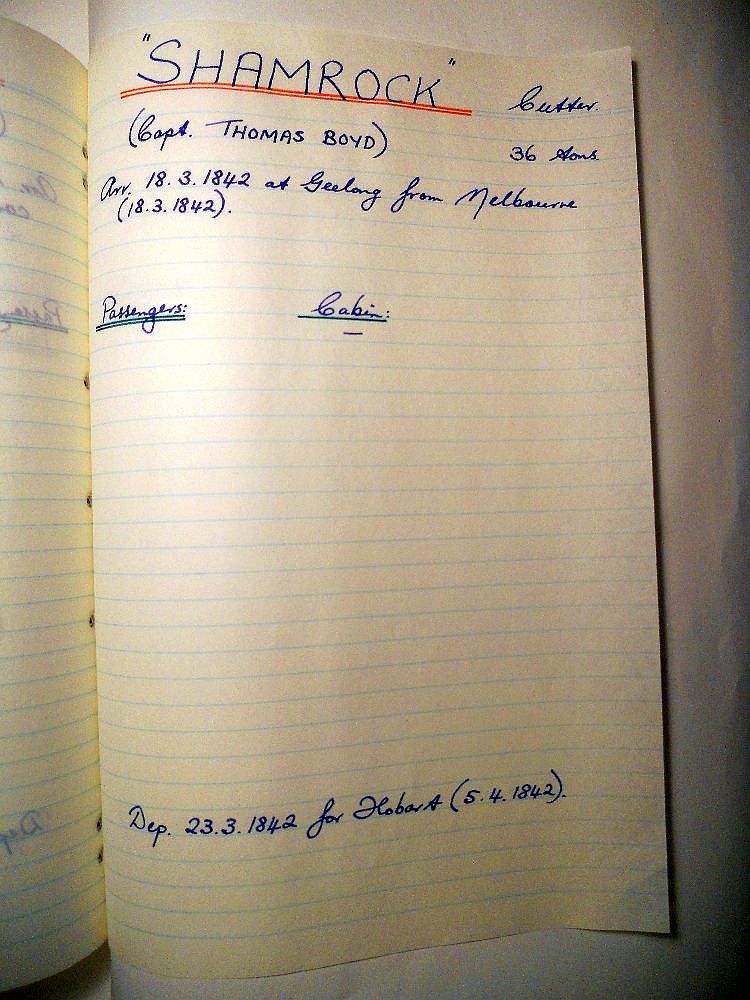 "SHAMROCK"
Cutter.
(Capt. THOMAS BOYD)
36 tons.
Arr. 18.3.1842 at Geelong from Melbourne
(18.3.1842).
Passengers:
Cabin:
—
Dep. 23.3.1842 for Hobart (5.4.1842).